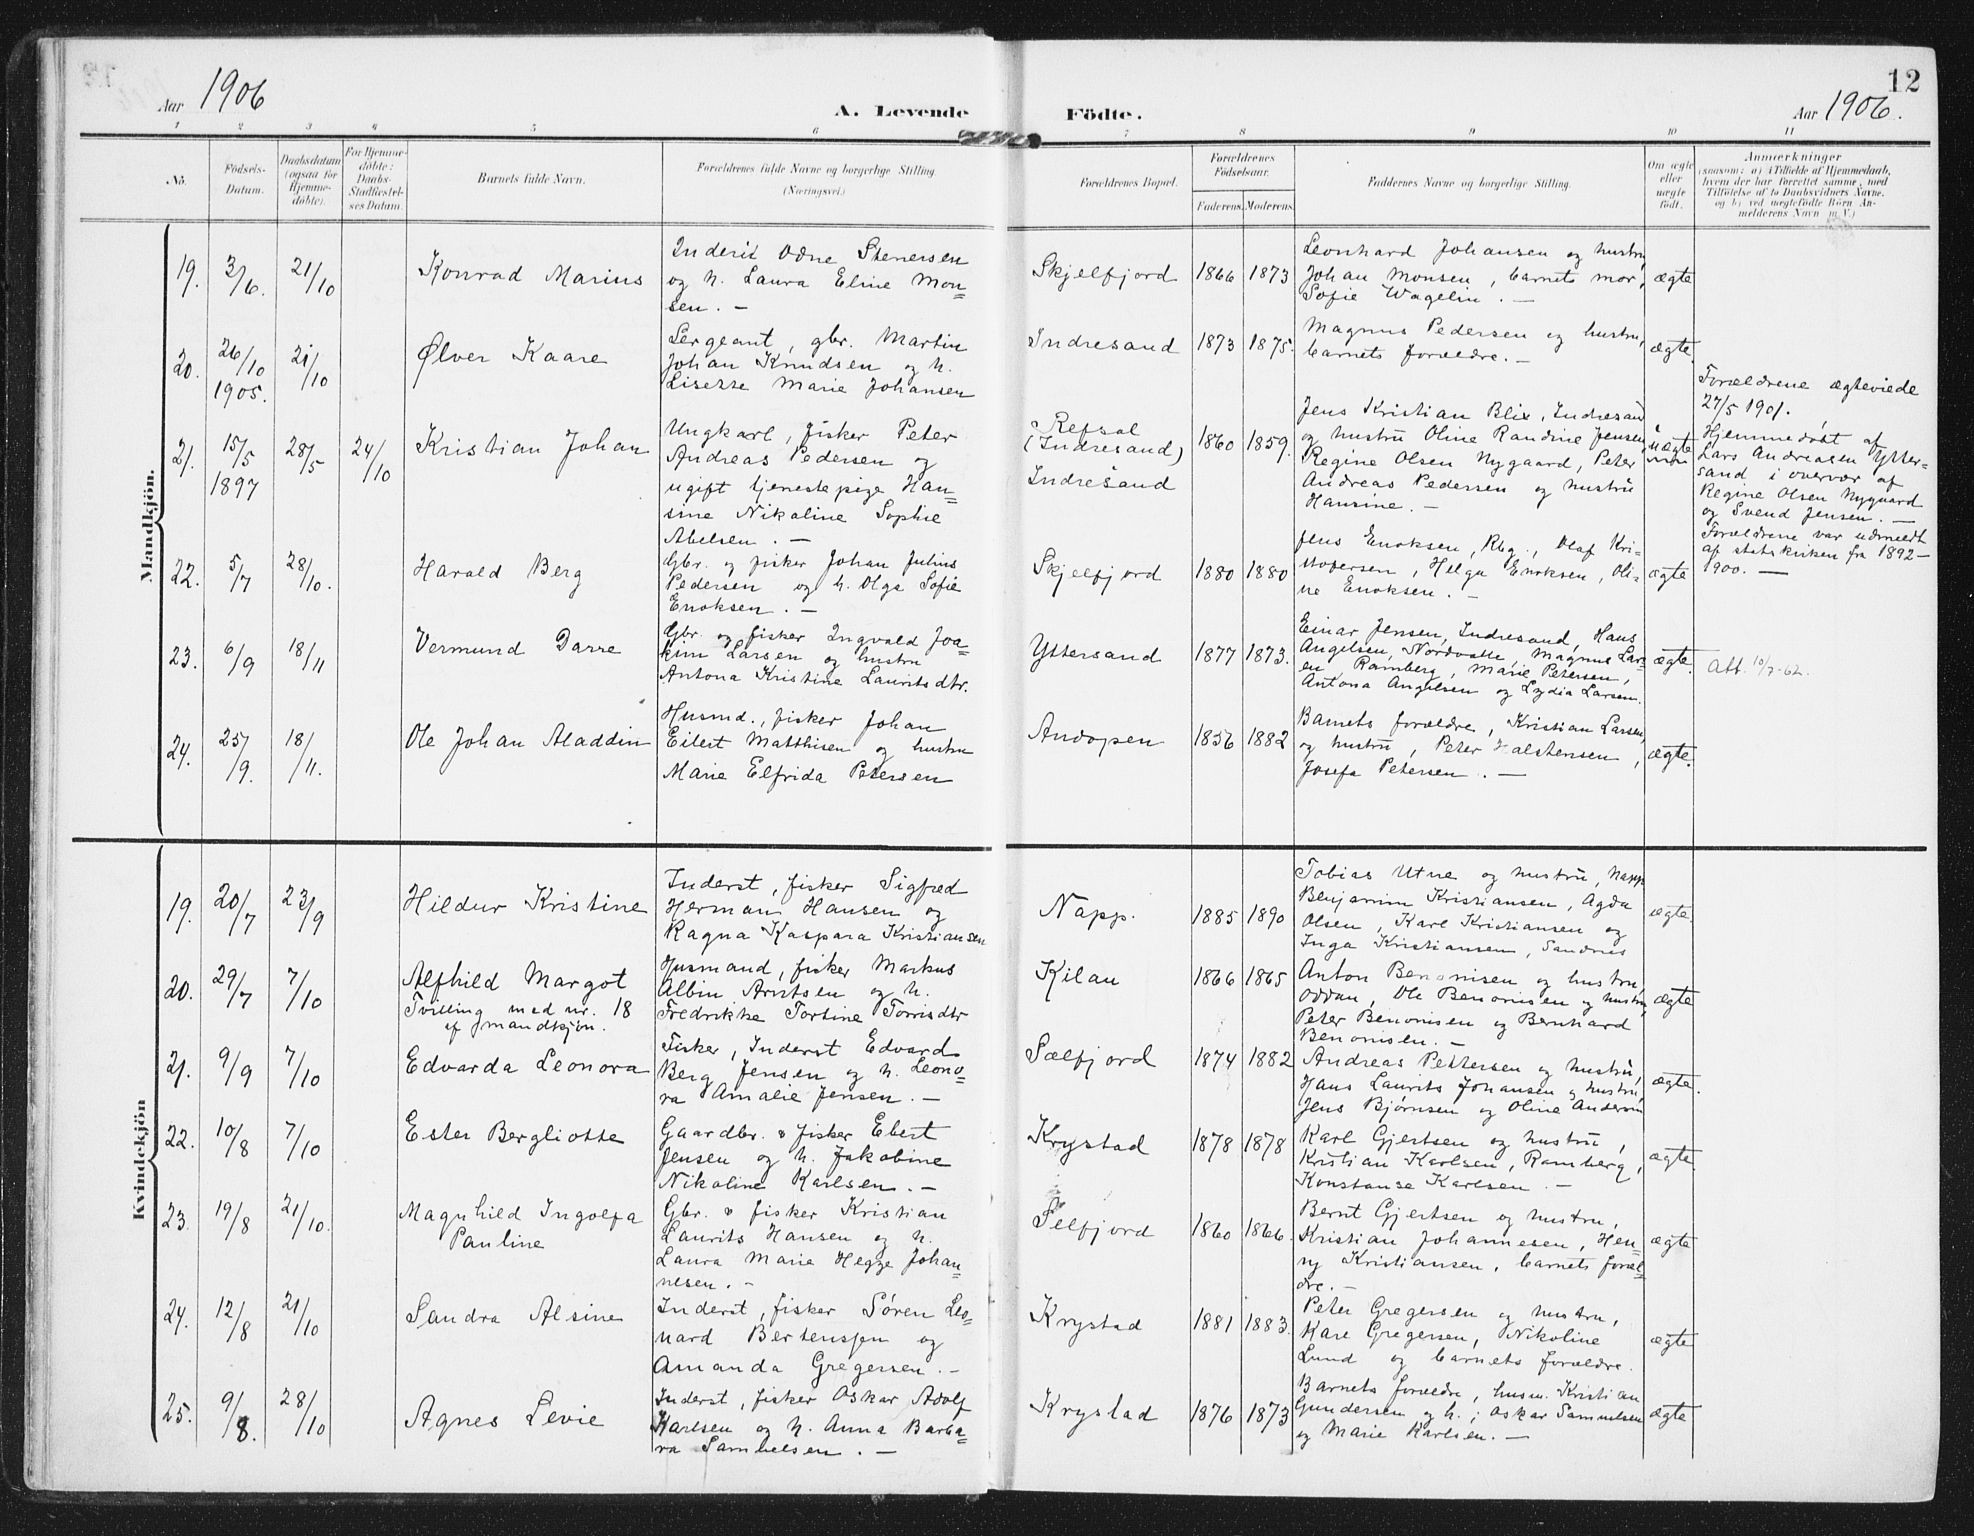 12
Aar 1906
A. Levende
Födte.
Aar 1906.
1 2 3 4 5 6 7 8 9 10 11
No.
Födsels-
Datum.
Daabsdatum
(ogsaa for
Hjemme-
döbte).
For Hjemme-
döbte:
Daabs-
Stadfæstel-
ses Datum.
Barnets fulde Navn.
Forældrenes fulde Navne og borgerlige Stilling
(Næringsvei.)
Forældrenes Bopæl.
Forældrenes
Födselsaar.
Faderens. Moderens.
Faddernes Navne og borgerlige Stilling.
Om ægte
eller
uægte
födt.
Anmærkninger
(saasom: a) i Tilfælde af Hjemmedaab,
hvem der har forrettet samme, med
Tilföielse af to Daabsvidners Navne,
og b) ved uægtefödte Börn An-
melderens Navn m. V.)
Mandkjön.
19. 3/6. 21/10
Konrad Marius
Inderst Odne Stenersen
og h. Laura Eline Mon=
sen. -
Skjelfjord 1866 1873
Leonhard Johansen og hustru
Johan Monsen, barnets mor,
Sofie Wagelin. -
ægte
20. 26/10 1905. 21/10
Ølver Kaare
Sergeant, gbr. Martin
Johan Knudsen og h.
Lisette Marie Johansen
Indresand 1873 1875.
Magnus Pedersen og hustru,
barnets forældre. -
ægte
21. 15/5 1897 28/5 24/10
Kristian Johan
Ungkarl, fisker Peter
Andreas Pedersen og
ugift tjenestepige Han=
sine Nikoline Sophie
Abelsen. -
Refsal
(Indresand)
Indresand
1860 1859.
Jens Kristian Blix, Indresand
og hustru Oline Randine Jensen,
Regine Olsen Nygaard, Peter
Andreas Pedersen og hustru
Hansine. -
uægte
Forældrene ægteviede
27/5 1901.
Hjemmedøbt af
Lars Andreasen Ytter=
sand i overvær af
Regine Olsen Nygaard
og Svend Jensen. -
Forældrene var udmeldt
af statskirken fra 1892-
1900. -
22. 5/7 28/10.
Harald Berg
Gbr. og fisker Johan Julius
Pedersen og h. Olga Sofie
Enoksen. -
Skjelfjord 1880 1880
Jens Enoksen, Rbg., Olaf Kri-
stofersen, Helga Enoksen, Oli-
ne Enoksen. -
ægte
23. 6/9 18/11
Vermund Darre
Gbr. og fisker Ingvald Joa=
kim Larsen og hustru
Antona Kristine Lauritsdtr.
Yttersand 1877 1873.
Einar Jensen, Indresand, Hans
Angelsen, Nordvatte, Magnus Lars=
en Ramberg, Marie Petersen,
Antona Angelsen og Lydia Larsen.
ægte.
Att. 10/7-62.
24. 25/9. 18/11.
Ole Johan Aladdin
Husmd., fisker Johan
Eilert Matthisen og hustru
Marie Elfrida Petersen
Andopen 1856 1882
Barnets forældre, Kristian Larsen,
og hustru, Peter Halstensen,
Josefa Petersen. -
ægte.
Kvindekjön
19. 20/7 23/9
Hildur Kristine
Inderst, fisker Sigfred
Herman Hansen og
Ragna Kaspara Kristiansen
Napp. 1885 1890
Tobias Utne og hustru, Napp
Benjamin Kristiansen, Agda
Olsen, Karl Kristiansen og
Inga Kristiansen, Sandnes
ægte
20. 29/7 7/10
Alfhild Margot
Tvilling med nr. 18
af mandkjøn.
Husmand, fisker Markus
Albin Arntsen og h.
Fredrikke Tortine Torrisdtr
Kilan 1866 1865
Anton Benonisen og hustru,
Oddan, Ole Benonisen og hustru,
Peter Benonisen og Bernhard
Benonisen. -
ægte
21. 9/9 7/10
Edvarda Leonora
Fisker, Inderst Edvard
Berg Jensen og h. Leono=
ra Amalie Jensen. -
Selfjord 1874 1882
Andreas Pettersen og hustru,
Hans Laurits Johansen og hustru,
Jens Bjørnsen og Oline Andersen
ægte.
22. 10/8 7/10
Ester Bergliotte
Gaardbr. & fisker Ebert
Jensen og h. Jakobine
Nikoline Karlsen. -
Krystad 1878 1878
Karl Gjertsen og hustru,
Kristian Karlsen, Ramberg,
Konstanse Karlsen. -
ægte.
23. 19/8 21/10.
Magnhild Ingolfa
Pauline
Gbr. & fisker Kristian
Laurits Hansen og h.
Laura Marie Hegge Johan=
nesen. -
Selfjord 1860 1866.
Bernt Gjertsen og hustru,
Kristian Johannesen, Hen=
ny Kristiansen, barnets foræl=
dre. -
ægte
24. 12/8 21/10
Sandra Alsine
Inderst, fisker Søren Leo=
nard Bertensjen og
Amanda Gregersen. -
Krystad 1881 1883.
Peter Gregersen og hustru,
Kare Gregersen, Nikoline
Lund og barnets forældre.
ægte
25. 9/8. 28/10
Agnes Levie
Inderst, fisker Oskar Adolf
Karlsen og h. Anna Barba=
ra Samuelsen. -
Krystad 1876 1873
Barnets forældre, husm. Kristian
Gundersen og h.; Oskar Samuelsen
og Marie Karlsen. -
ægte